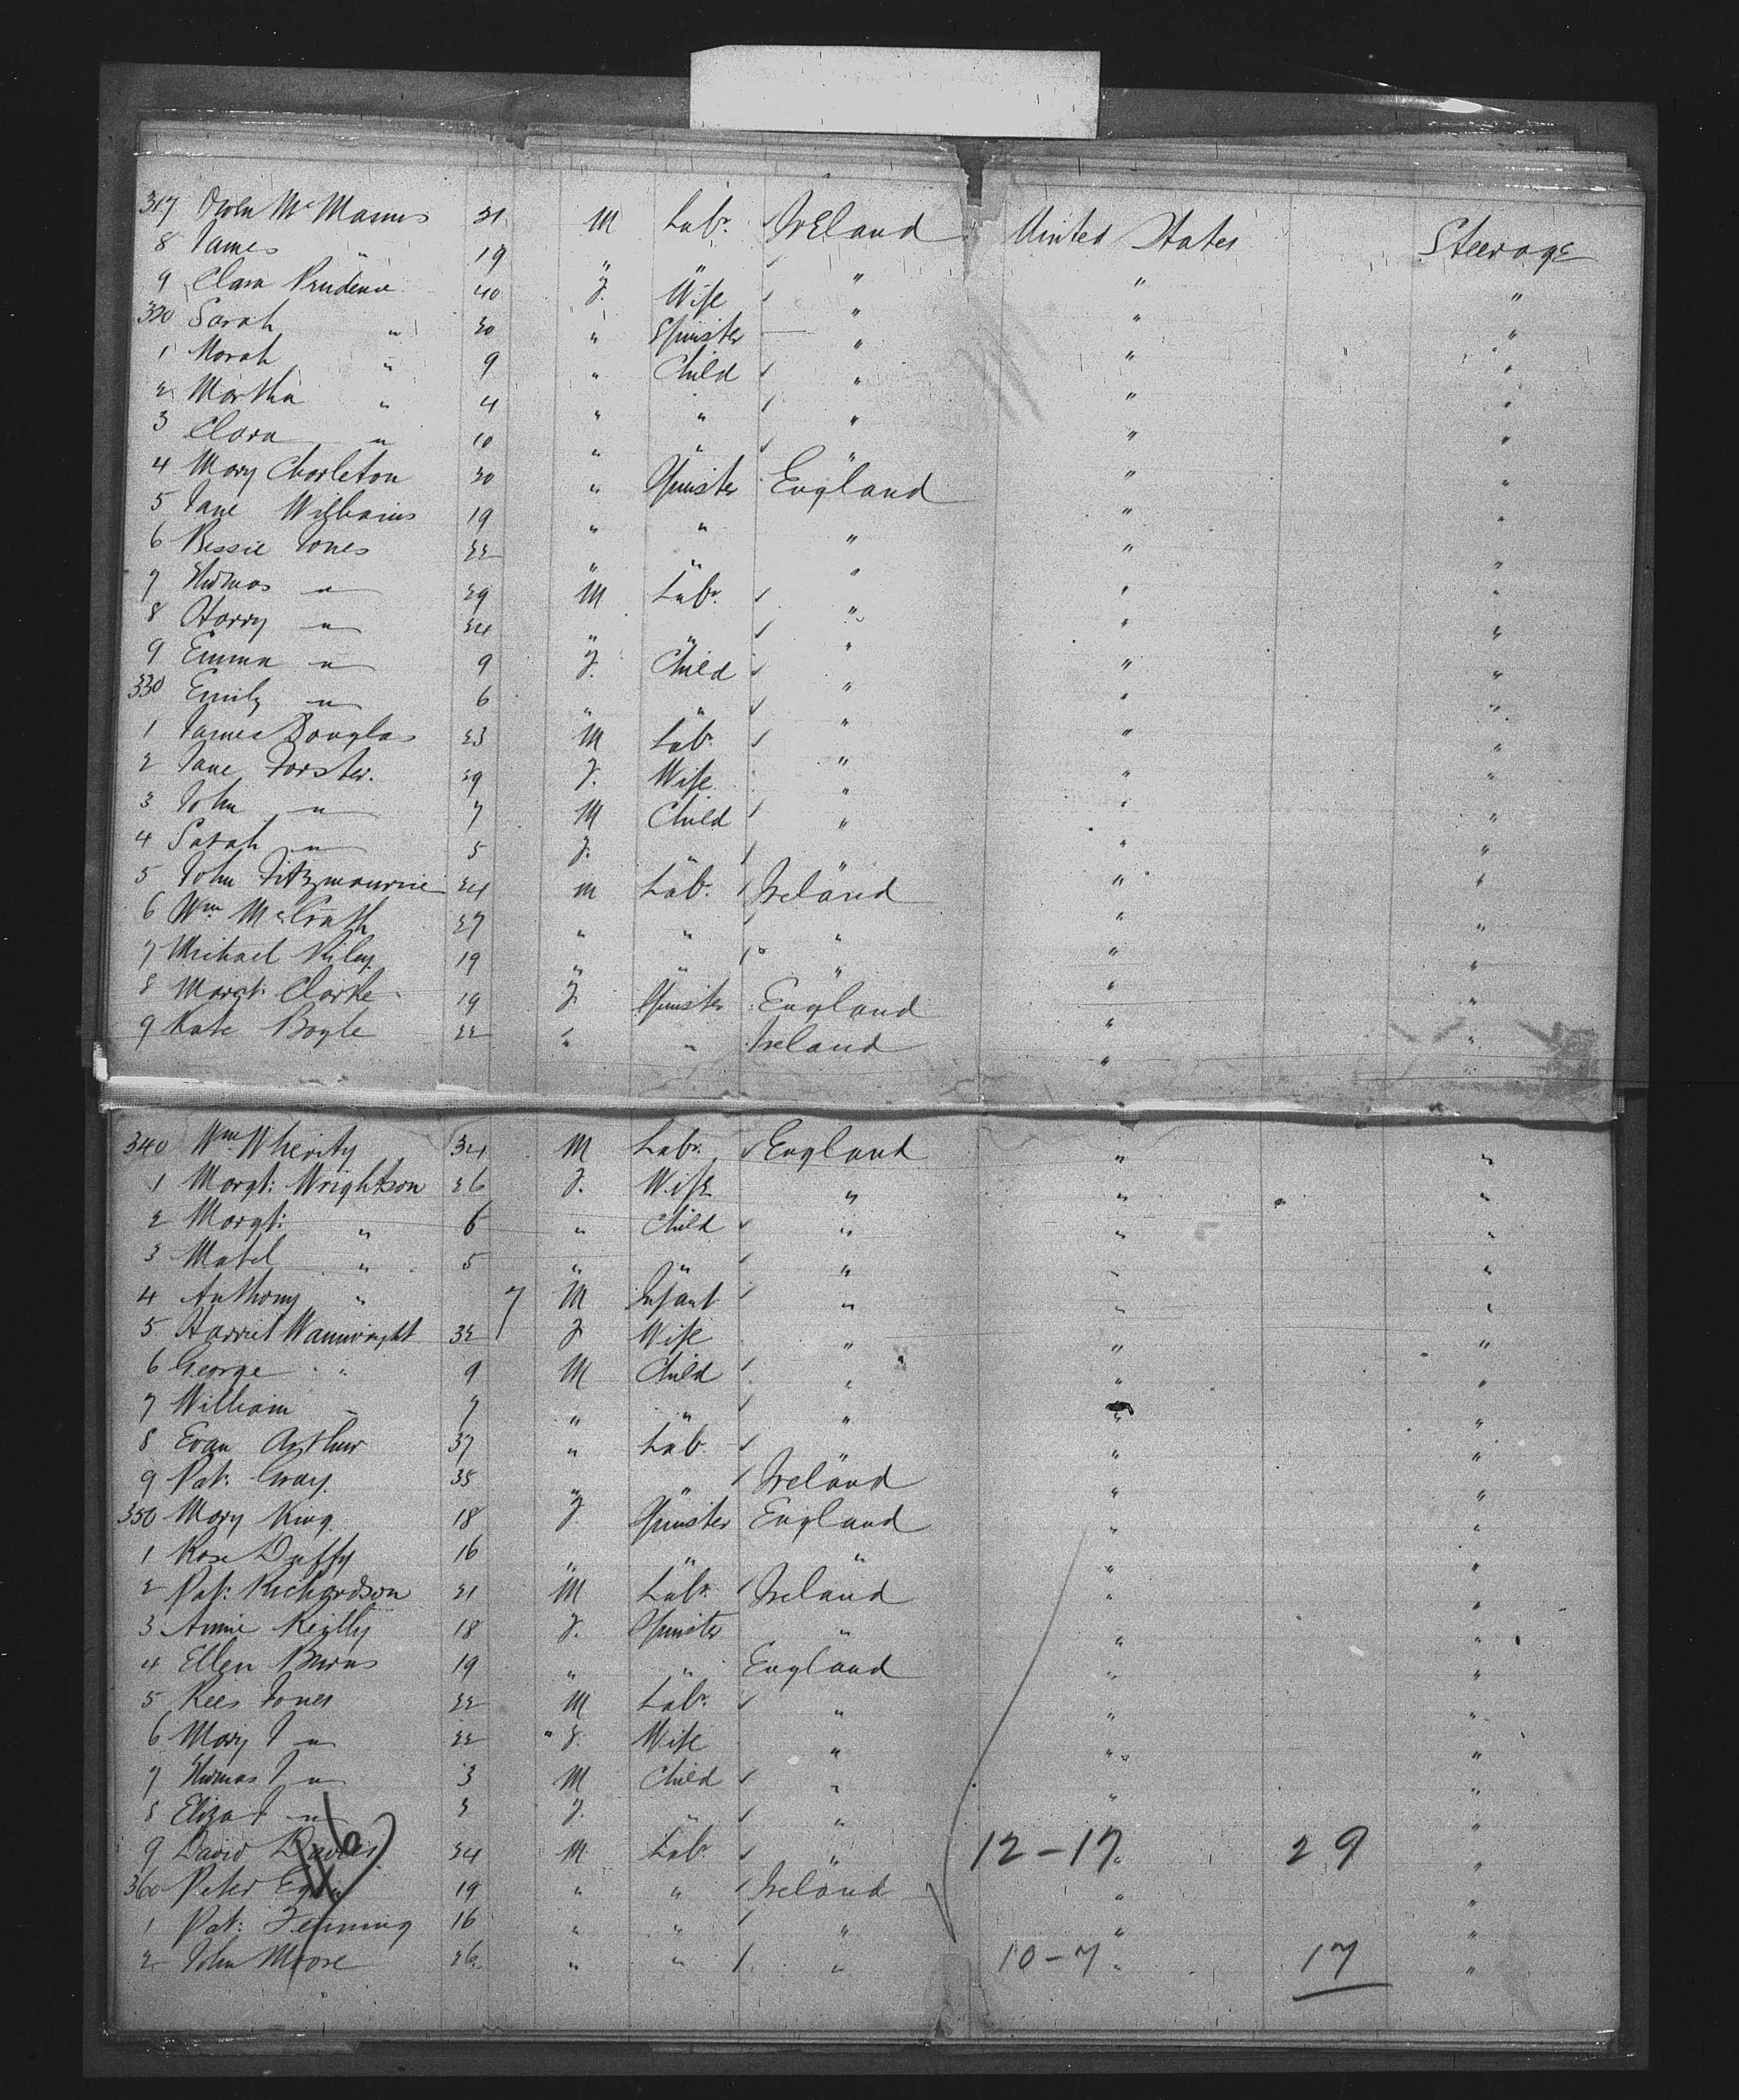 317 Owen McManus 21 M Labr. Ireland United States Steerage
8 James " 19 " " " " "
9 Clara Prudence 40 F. Wife " " "
320 Sarah " 20 " Spinster " " "
1 Norah " 9 " Child " " "
2 Martha " 4 " " " " "
3 Clara " 10 " " " " "
4 Mary Charleton 20 " Spinster England " "
5 Jane Williams 19 " " " " "
6 Bessie Jones 22 " " " " "
7 Thomas " 29 M Labr. " " "
8 Harry " 24 " " " " "
9 Emma " 9 F. Child " " "
330 Emily " 6 " " " " "
1 James Douglas 23 M Labr. " " "
2 Jane Forster. 29 F. Wife " " "
3 John " 7 M Child " " "
4 Sarah " 5 F. " " " "
5 John Fitzmaurice 24 M Labr. Ireland " "
6 Wm McGrath 27 " " " " "
7 Michael Riley 19 " " " " "
8 Margt. Clarke 19 F. Spinster England " "
9 Kate Boyle 22 " " Ireland " "
340 Wm Wherity 34 M Labr. England " "
1 Margt: Wrightson 26 F. Wife " " "
2 Margt: " 6 " Child " " "
3 Mabel " 5 " " " " "
4 Anthony " 7 M Infant " " "
5 Harriet Wainwright 32 F Wife " " "
6 George " 9 M Child " " "
7 William " 7 " " " " "
8 Evan Arthur 37 " Labr. " " "
9 Pat: Gray. 35 " " Ireland " "
350 Mary King 18 F. Spinster England " "
1 Rose Duffy 16 " " " " "
2 Pat: Richardson 21 M Labr. Ireland " "
3 Annie Reilly 18 F. Spinster " " "
4 Ellen Burns 19 " " England " "
5 Rees Jones 22 M Labr. " " "
6 Mary J " 22 " F. Wife " " "
7 Thomas J " 3 M Child " " "
8 Eliza J " 2 F. " " " "
9 David Davies 24 M Labr. " 12-17 " 29 "
360 Peter 19 " " Ireland " "
1 Pat: Fenning 16 " " " " "
2 John Moore 26 " " " 10-7 " 17 "